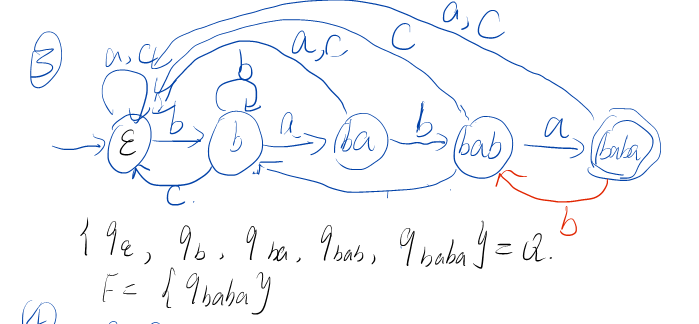 ③
a, c
a, c
c
a, c
b
ε
b
b
a
ba
b
bab
a
baba
c.
b
{ qε, qb, qba, qbab, qbaba } = Q.
F = { qbaba }